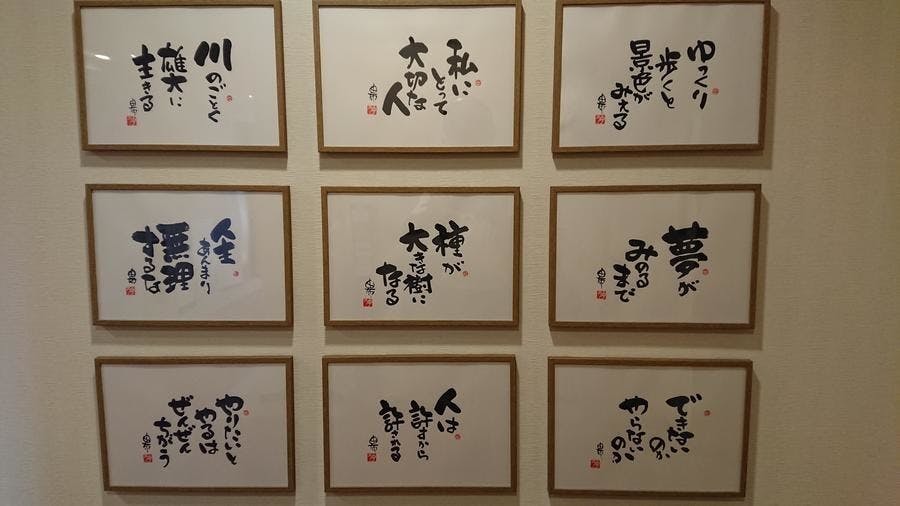 ゆっくり
歩くと
景色が
みえる
私に
とって
大切な
人
川のごとく
雄大に
生きる
夢が
みのる
まで
種が
大きな樹に
なる
人生
あんまり
無理
するな
できない
のか
やらない
のか
人は
許すから
許される
やりたいと
やるは
ぜんぜん
ちがう